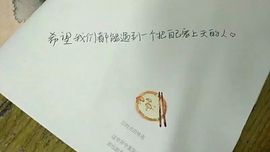 希望我们都能遇到一个把自己宠上天的人。